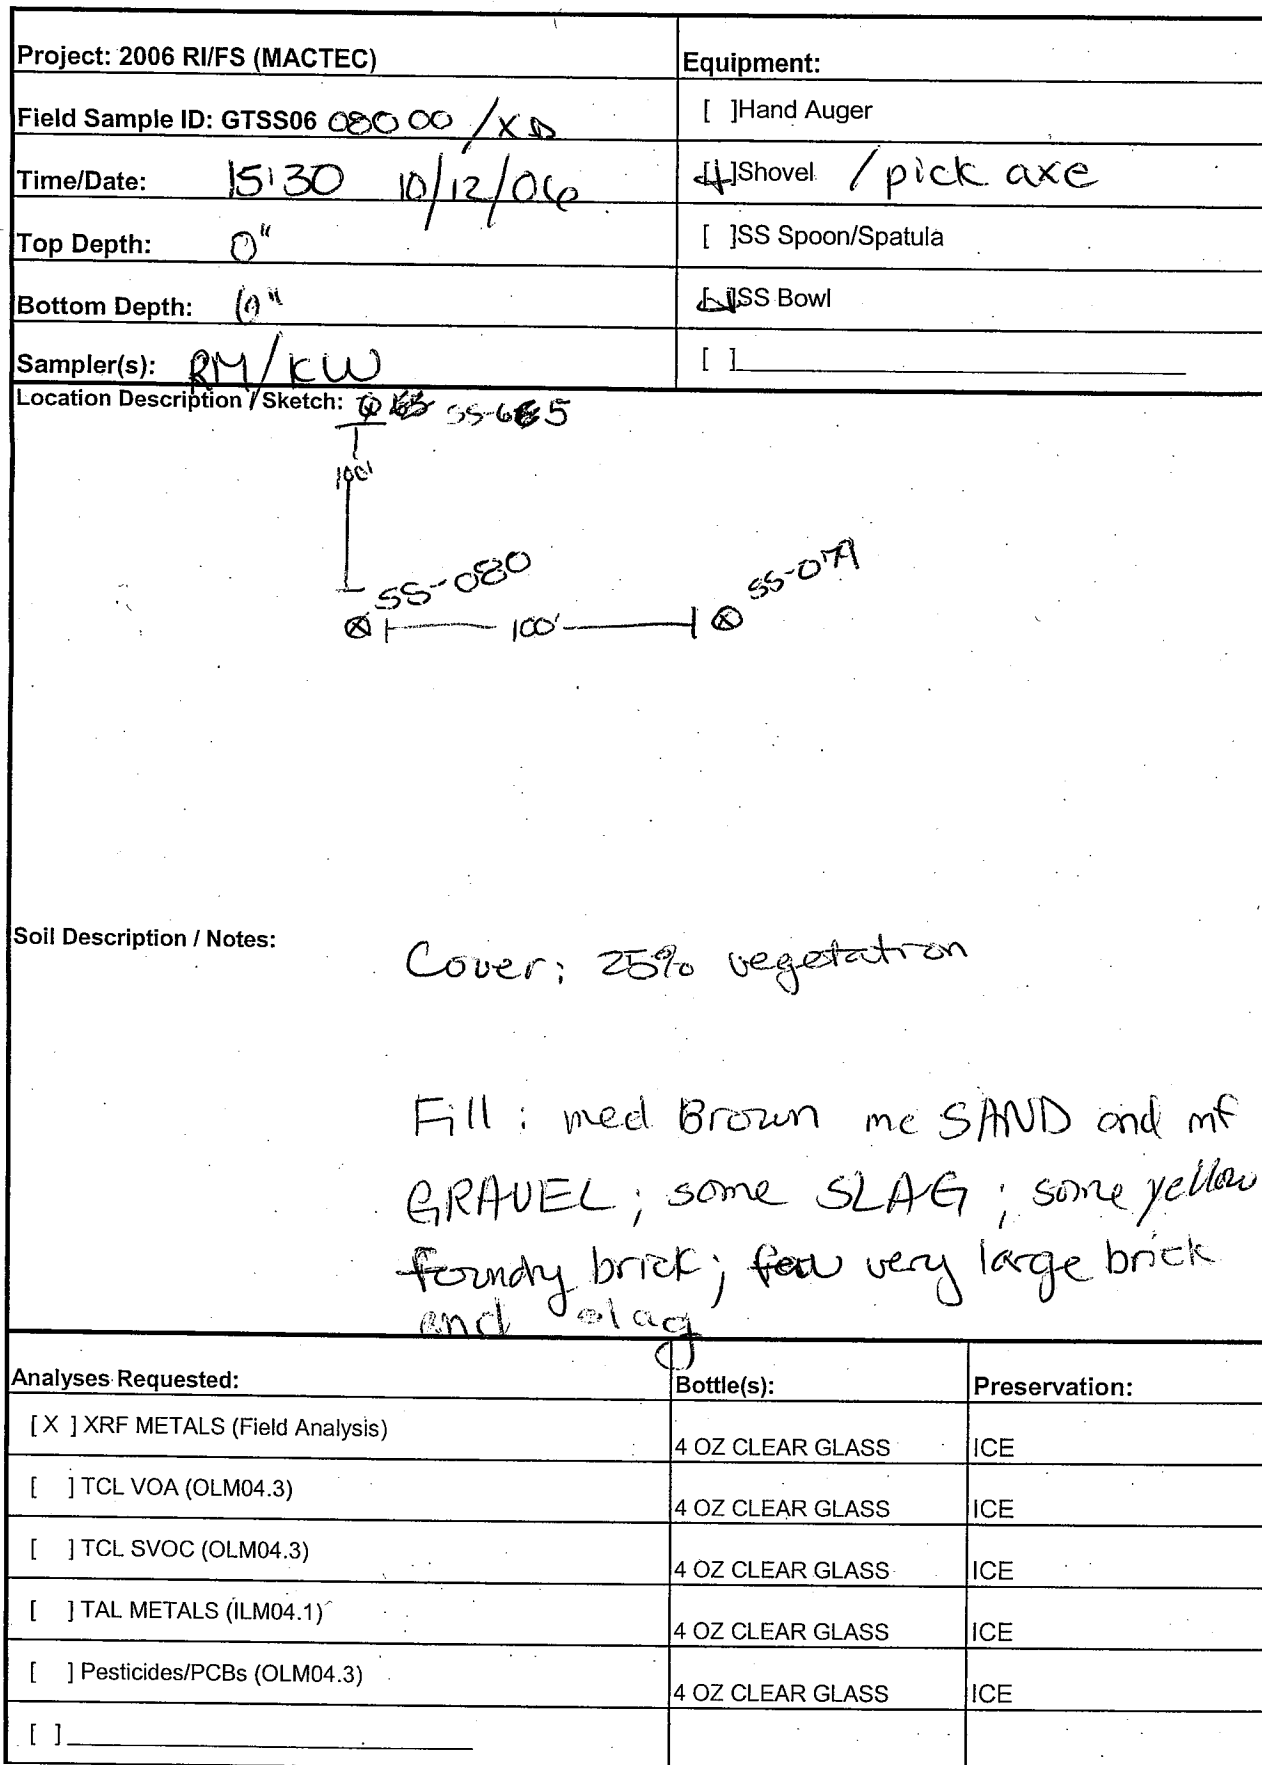 Project: 2006 RI/FS (MACTEC)
Equipment:
Field Sample ID: GTSS06 08000 /XD
[ ]Hand Auger
Time/Date: 15:30 10/12/06
[ ]Shovel / pick axe
Top Depth: 0"
[ ]SS Spoon/Spatula
Bottom Depth:
[ ]SS Bowl
Sampler(s): RM/KW
[ ]
Location Description / Sketch:
100'
SS-080
SS-079
100'
Soil Description / Notes:
Cover; 25% vegetation
Fill: med Brown mc SAND and mf
GRAVEL; some SLAG; some yellow
foundry brick; few very large brick
and slag
Analyses Requested:
Bottle(s):
Preservation:
[X ] XRF METALS (Field Analysis)
4 OZ CLEAR GLASS
ICE
[ ] TCL VOA (OLM04.3)
4 OZ CLEAR GLASS
ICE
[ ] TCL SVOC (OLM04.3)
4 OZ CLEAR GLASS
ICE
[ ] TAL METALS (ILM04.1)
4 OZ CLEAR GLASS
ICE
[ ] Pesticides/PCBs (OLM04.3)
4 OZ CLEAR GLASS
ICE
[ ]